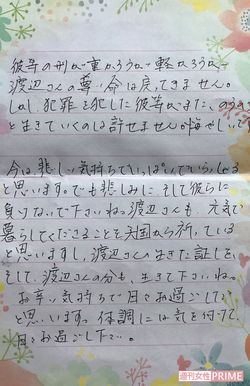 彼等の刑が重かろうが軽かろうが
渡辺さんの尊い命は戻ってきません。
しかし犯罪を犯した彼等がまたのうのう
と生きていくのは許せません悔やしいで
今は悲しい気持ちでいっぱいでいらっしゃる
と思います。でも悲しみに、そして彼らに
負けないで下さいね。渡辺さんも、元気で
暮らしてくださることを天国から祈っている
と思いますし、渡辺さんの生きた証しを、
そして、渡辺さんの分も、生きて下さいね。
お辛い気持ちで日々お過ごしで
と思いますが体調には気を付けて
日々お過ごし下さい…。
週刊女性PRIME